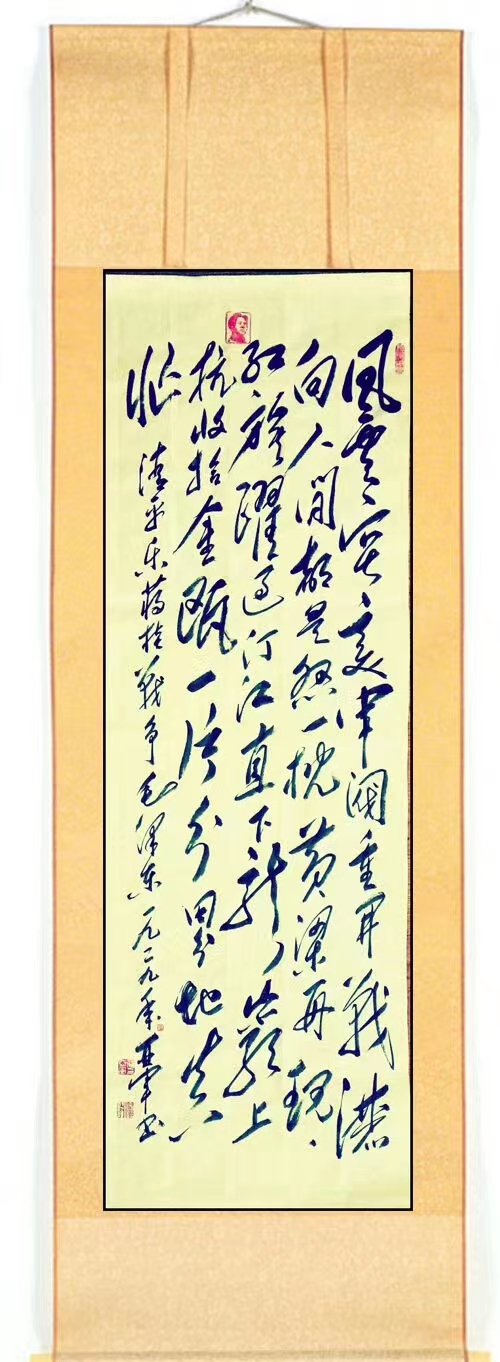 風雲突变軍閥重开戰灑
向人間都是怨一枕黄粱再現
红旗躍过汀江直下龍巖上
杭收拾金甌一片分田分地真
忙
清平乐蒋桂战争毛泽东一九二九年